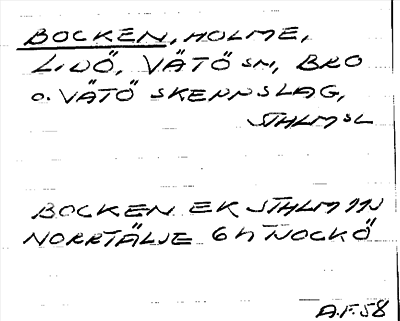 BOCKEN, HOLME,
LIDÖ, VÄTÖ SN, BRO
O. VÄTÖ SKEPPSLAG,
STHLMS L
BOCKEN EK STHLM
NORRTÄLJE 6 h
A.F. 58